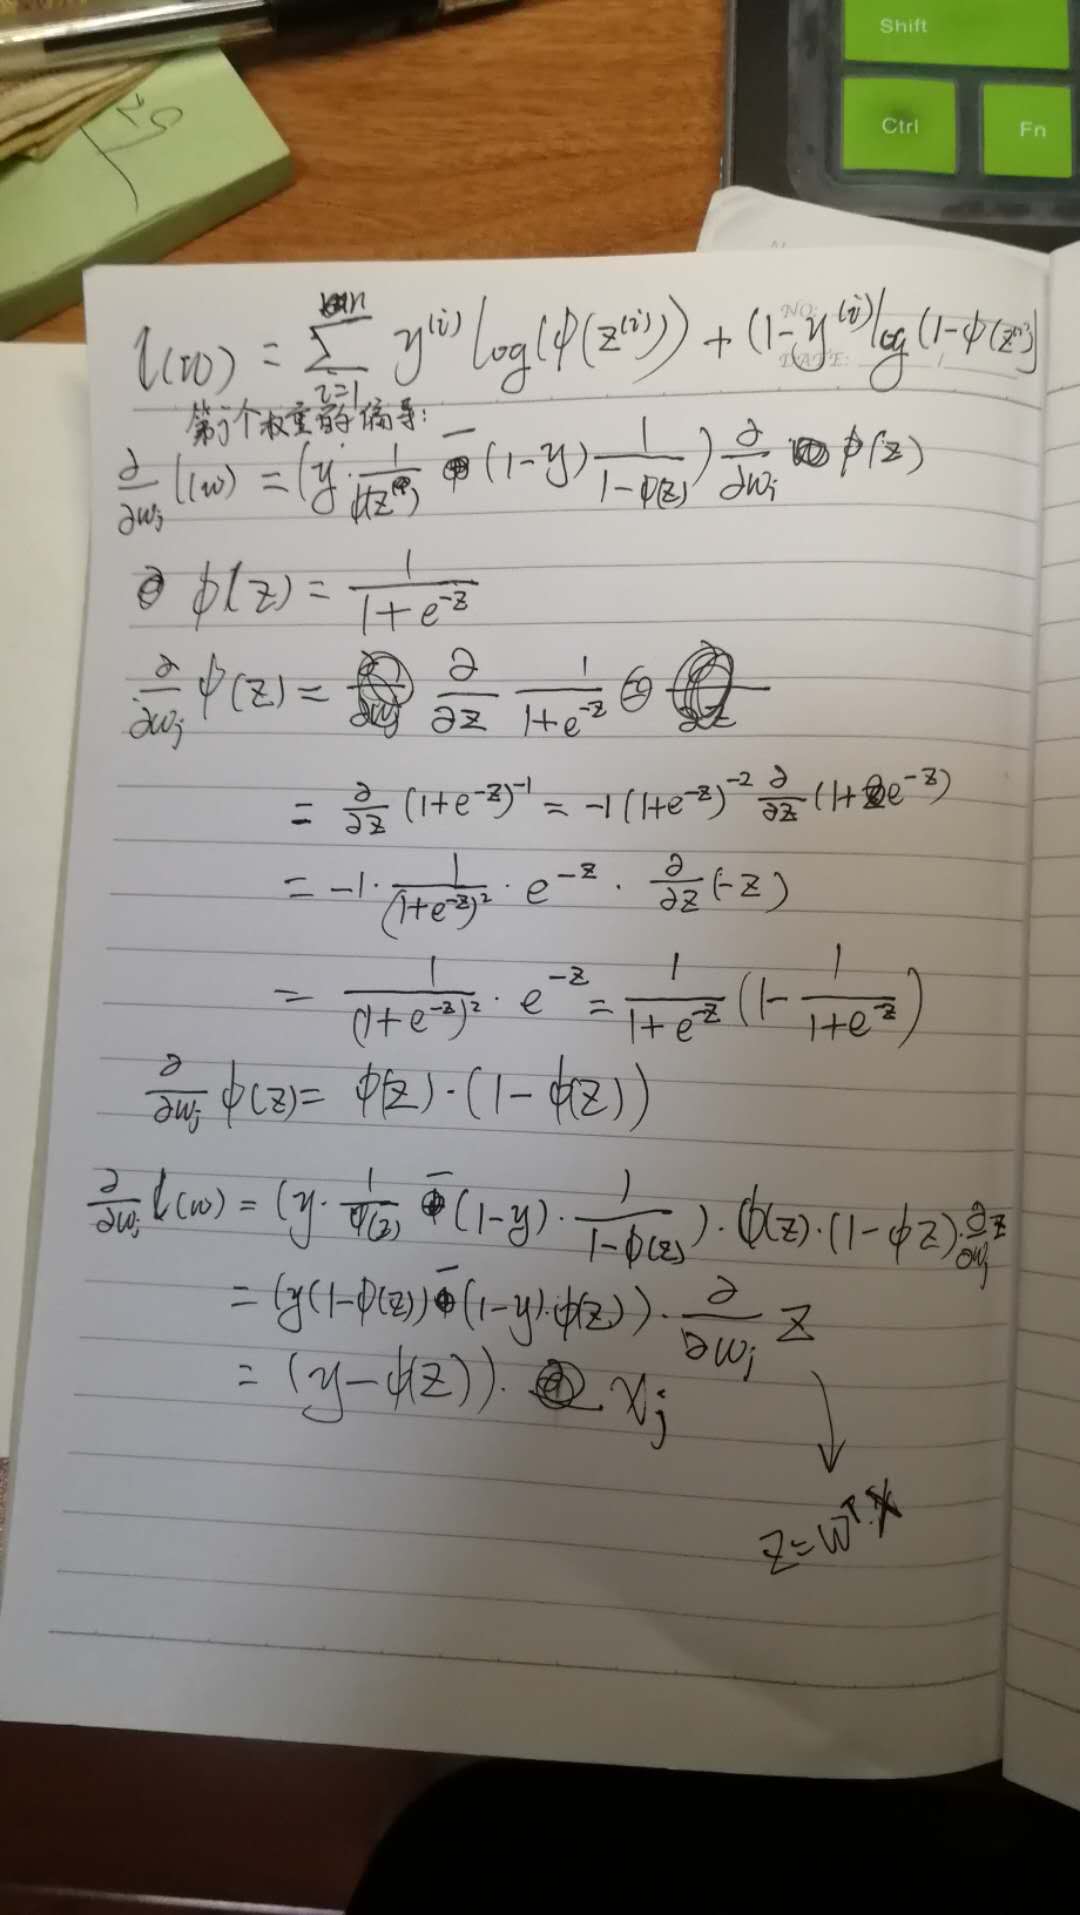 Shift
Ctrl
Fn
NO:
DATE:
l(w) = ∑_{i=1}^{n} y^{(i)} log(φ(z^{(i)})) + (1-y^{(i)}) log(1-φ(z^{(i)})
第j个权重的偏导:
∂/∂w_j l(w) = (y · 1/φ(z) - (1-y) 1/(1-φ(z))) ∂/∂w_j φ(z)
φ(z) = 1/(1+e^{-z})
∂/∂w_j φ(z) = ∂/∂z 1/(1+e^{-z})
= ∂/∂z (1+e^{-z})^{-1} = -1(1+e^{-z})^{-2} ∂/∂z (1+e^{-z})
= -1 · 1/(1+e^{-z})^2 · e^{-z} · ∂/∂z (-z)
= 1/(1+e^{-z})^2 · e^{-z} = 1/(1+e^{-z}) (1- 1/(1+e^{-z}))
∂/∂w_j φ(z) = φ(z) · (1-φ(z))
∂/∂w_j l(w) = (y · 1/φ(z) - (1-y) · 1/(1-φ(z))) · φ(z) · (1-φz) · ∂/∂w_j z
= (y(1-φ(z)) - (1-y)·φ(z)) · ∂/∂w_j z
= (y-φ(z)) · x_j
z=w^T·x